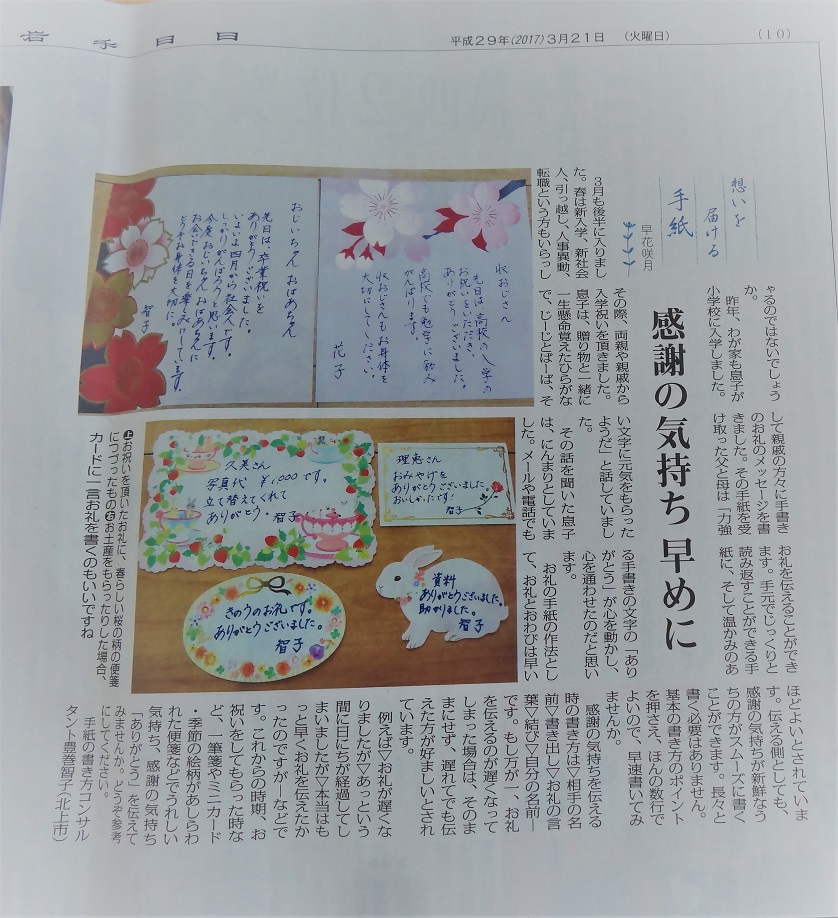 岩手日日
平成29年(2017)3月21日 (火曜日)
(10)
想いを
届ける
手紙
早花咲月
感謝の気持ち 早めに
3月も後半に入りまし
た。春は新入学、新社会
人、引っ越し、人事異動、
転職という方もいらっし
ゃるのではないでしょう
か。
昨年、わが家も息子が
小学校に入学しました。
その際、両親や親戚から
入学祝いを頂きました。
息子は、贈り物と一緒に
一生懸命覚えたひらがな
で、じーじとばーば、そ
して親戚の方々に手書き
のお礼のメッセージを書
きました。その手紙を受
け取った父と母は「力強
い文字に元気をもらった
ようだ」と話していまし
た。
その話を聞いた息子
は、にんまりとしていま
した。メールや電話でも
お礼を伝えることができ
ます。手元でじっくりと
読み返すことができる手
紙に、そして温かみのあ
る手書きの文字の「あり
がとう」が心を動かし、
心を通わせたのだと思い
ます。
お礼の手紙の作法とし
て、お礼とおわびは早い
ほどよいとされていま
す。伝える側としても、
感謝の気持ちが新鮮なう
ちの方がスムーズに書く
ことができます。長々と
書く必要はありません。
基本の書き方のポイント
を押さえ、ほんの数行で
よいので、早速書いてみ
ませんか。
感謝の気持ちを伝える
時の書き方は▽相手の名
前▽書き出し▽お礼の言
葉▽結び▽自分の名前―
です。もし万が一、お礼
を伝えるのが遅くなって
しまった場合は、そのま
まにせず、遅れてでも伝
えた方が好ましいとされ
ています。
例えば▽お礼が遅くな
りましたが▽あっという
間に日にちが経過してし
まいましたが▽本当はも
っと早くお礼を伝えたか
ったのですが―などで
す。これからの時期、お
祝いをしてもらった時な
ど、一筆箋やミニカード
・季節の絵柄があしらわ
れた便箋などでうれしい
気持ち、感謝の気持ち
「ありがとう」を伝えて
みませんか。どうぞ参考
にしてください。
手紙の書き方コンサル
タント豊巻智子(北上市)
收おじさん
先日は高校の入学の
お祝いをいただき、
ありがとうございました。
高校でも勉学に励み
がんばります。
收おじさんもお身体を
大切にしてください。
花子
おじいちゃん おばあちゃん
先日は、卒業祝いを
ありがとうございました。
いよいよ四月から社会人です。
しっかりがんばろうと思います。
今度おじいちゃん おばあちゃんに
お会いできる日を楽しみにしています。
どうぞお身体を大切に。
智子
久美さん
写真代 ¥1,000です。
立て替えてくれて
ありがとう。 智子
理恵さん
おみやげを
ありがとうございました。
おいしかったです!
智子
きのうのお礼です。
ありがとうございました。
智子
資料
ありがとうございました。
助かりました。
智子
上お祝いを頂いたお礼に、春らしい桜の柄の便箋
につづったもの右お土産をもらったりした場合、
カードに一言お礼を書くのもいいですね